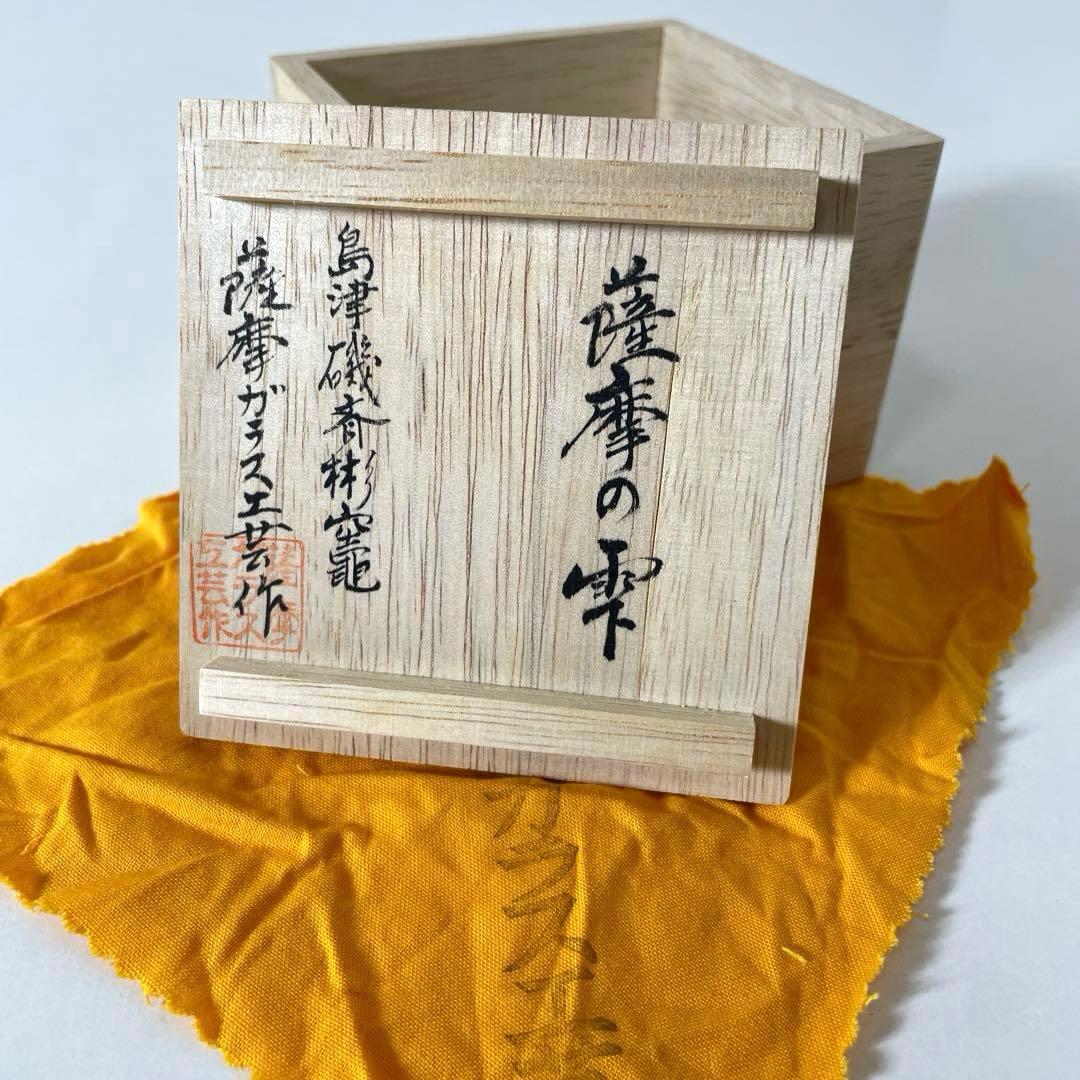 薩摩の雫
島津磯斉彬窯竈
薩摩ガラス工芸作
薩摩
ガラス
工芸作
ガラス工芸